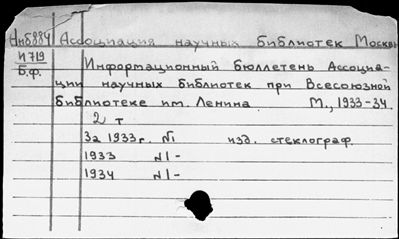 Анб884 Ассоциация научных библиотек Москвы
И 719 Информационный бюллетень Ассоциа-
Б.ф. ции научных библиотек при Всесоюзной
библиотеке им. Ленина М., 1933-34
2 т
За 1933 г. №1 изд. стеклограф.
1933 №1-
1934 №1-